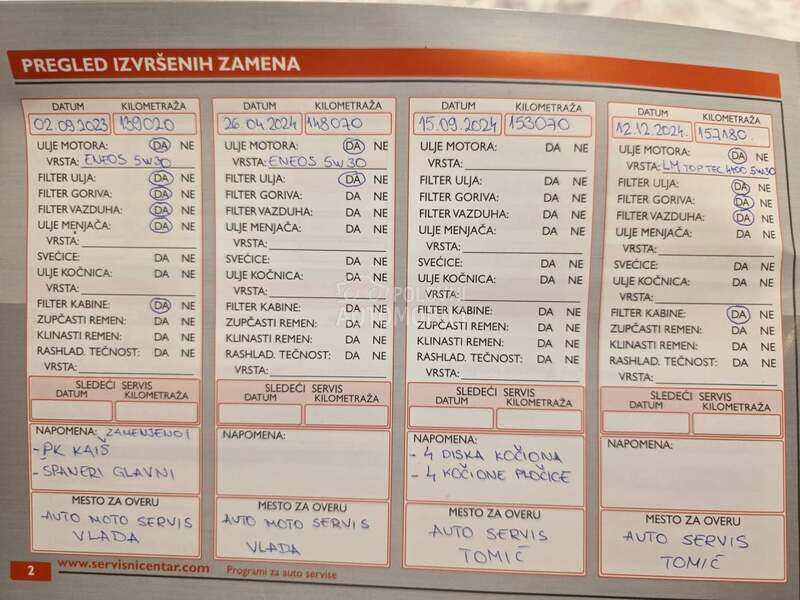 PREGLED IZVRŠENIH ZAMENA
DATUM KILOMETRAŽA
02.09.2023 139020
ULJE MOTORA: DA NE
VRSTA: ENEOS 5W30
FILTER ULJA: DA NE
FILTER GORIVA: DA NE
FILTER VAZDUHA: DA NE
ULJE MENJAČA: DA NE
VRSTA:
SVEĆICE: DA NE
ULJE KOČNICA: DA NE
VRSTA:
FILTER KABINE: DA NE
ZUPČASTI REMEN: DA NE
KLINASTI REMEN: DA NE
RASHLAD. TEČNOST: DA NE
VRSTA:
SLEDEĆI SERVIS
DATUM KILOMETRAŽA
NAPOMENA: ZAMENJENO I
- PK KAIŠ
- ŠPANERI GLAVNI
MESTO ZA OVERU
AUTO MOTO SERVIS
VLADA
DATUM KILOMETRAŽA
26.04.2024 148070
ULJE MOTORA: DA NE
VRSTA: ENEOS 5W30
FILTER ULJA: DA NE
FILTER GORIVA: DA NE
FILTER VAZDUHA: DA NE
ULJE MENJAČA: DA NE
VRSTA:
SVEĆICE: DA NE
ULJE KOČNICA: DA NE
VRSTA:
FILTER KABINE: DA NE
ZUPČASTI REMEN: DA NE
KLINASTI REMEN: DA NE
RASHLAD. TEČNOST: DA NE
VRSTA:
SLEDEĆI SERVIS
DATUM KILOMETRAŽA
NAPOMENA:
MESTO ZA OVERU
AUTO MOTO SERVIS
VLADA
DATUM KILOMETRAŽA
15.09.2024 153070
ULJE MOTORA: DA NE
VRSTA:
FILTER ULJA: DA NE
FILTER GORIVA: DA NE
FILTER VAZDUHA: DA NE
ULJE MENJAČA: DA NE
VRSTA:
SVEĆICE: DA NE
ULJE KOČNICA: DA NE
VRSTA:
FILTER KABINE: DA NE
ZUPČASTI REMEN: DA NE
KLINASTI REMEN: DA NE
RASHLAD. TEČNOST: DA NE
VRSTA:
SLEDEĆI SERVIS
DATUM KILOMETRAŽA
NAPOMENA:
- 4 DISKA KOČIONA
- 4 KOČIONE PLOČICE
MESTO ZA OVERU
AUTO SERVIS
TOMIČ
DATUM KILOMETRAŽA
12.12.2024. 157180
ULJE MOTORA: DA NE
VRSTA: LM TOP TEC 4100 5W30
FILTER ULJA: DA NE
FILTER GORIVA: DA NE
FILTER VAZDUHA: DA NE
ULJE MENJAČA: DA NE
VRSTA:
SVEĆICE: DA NE
ULJE KOČNICA: DA NE
VRSTA:
FILTER KABINE: DA NE
ZUPČASTI REMEN: DA NE
KLINASTI REMEN: DA NE
RASHLAD. TEČNOST: DA NE
VRSTA:
SLEDEĆI SERVIS
DATUM KILOMETRAŽA
NAPOMENA:
MESTO ZA OVERU
AUTO SERVIS
TOMIČ
2 www.servisnicentar.com Programi za auto servise